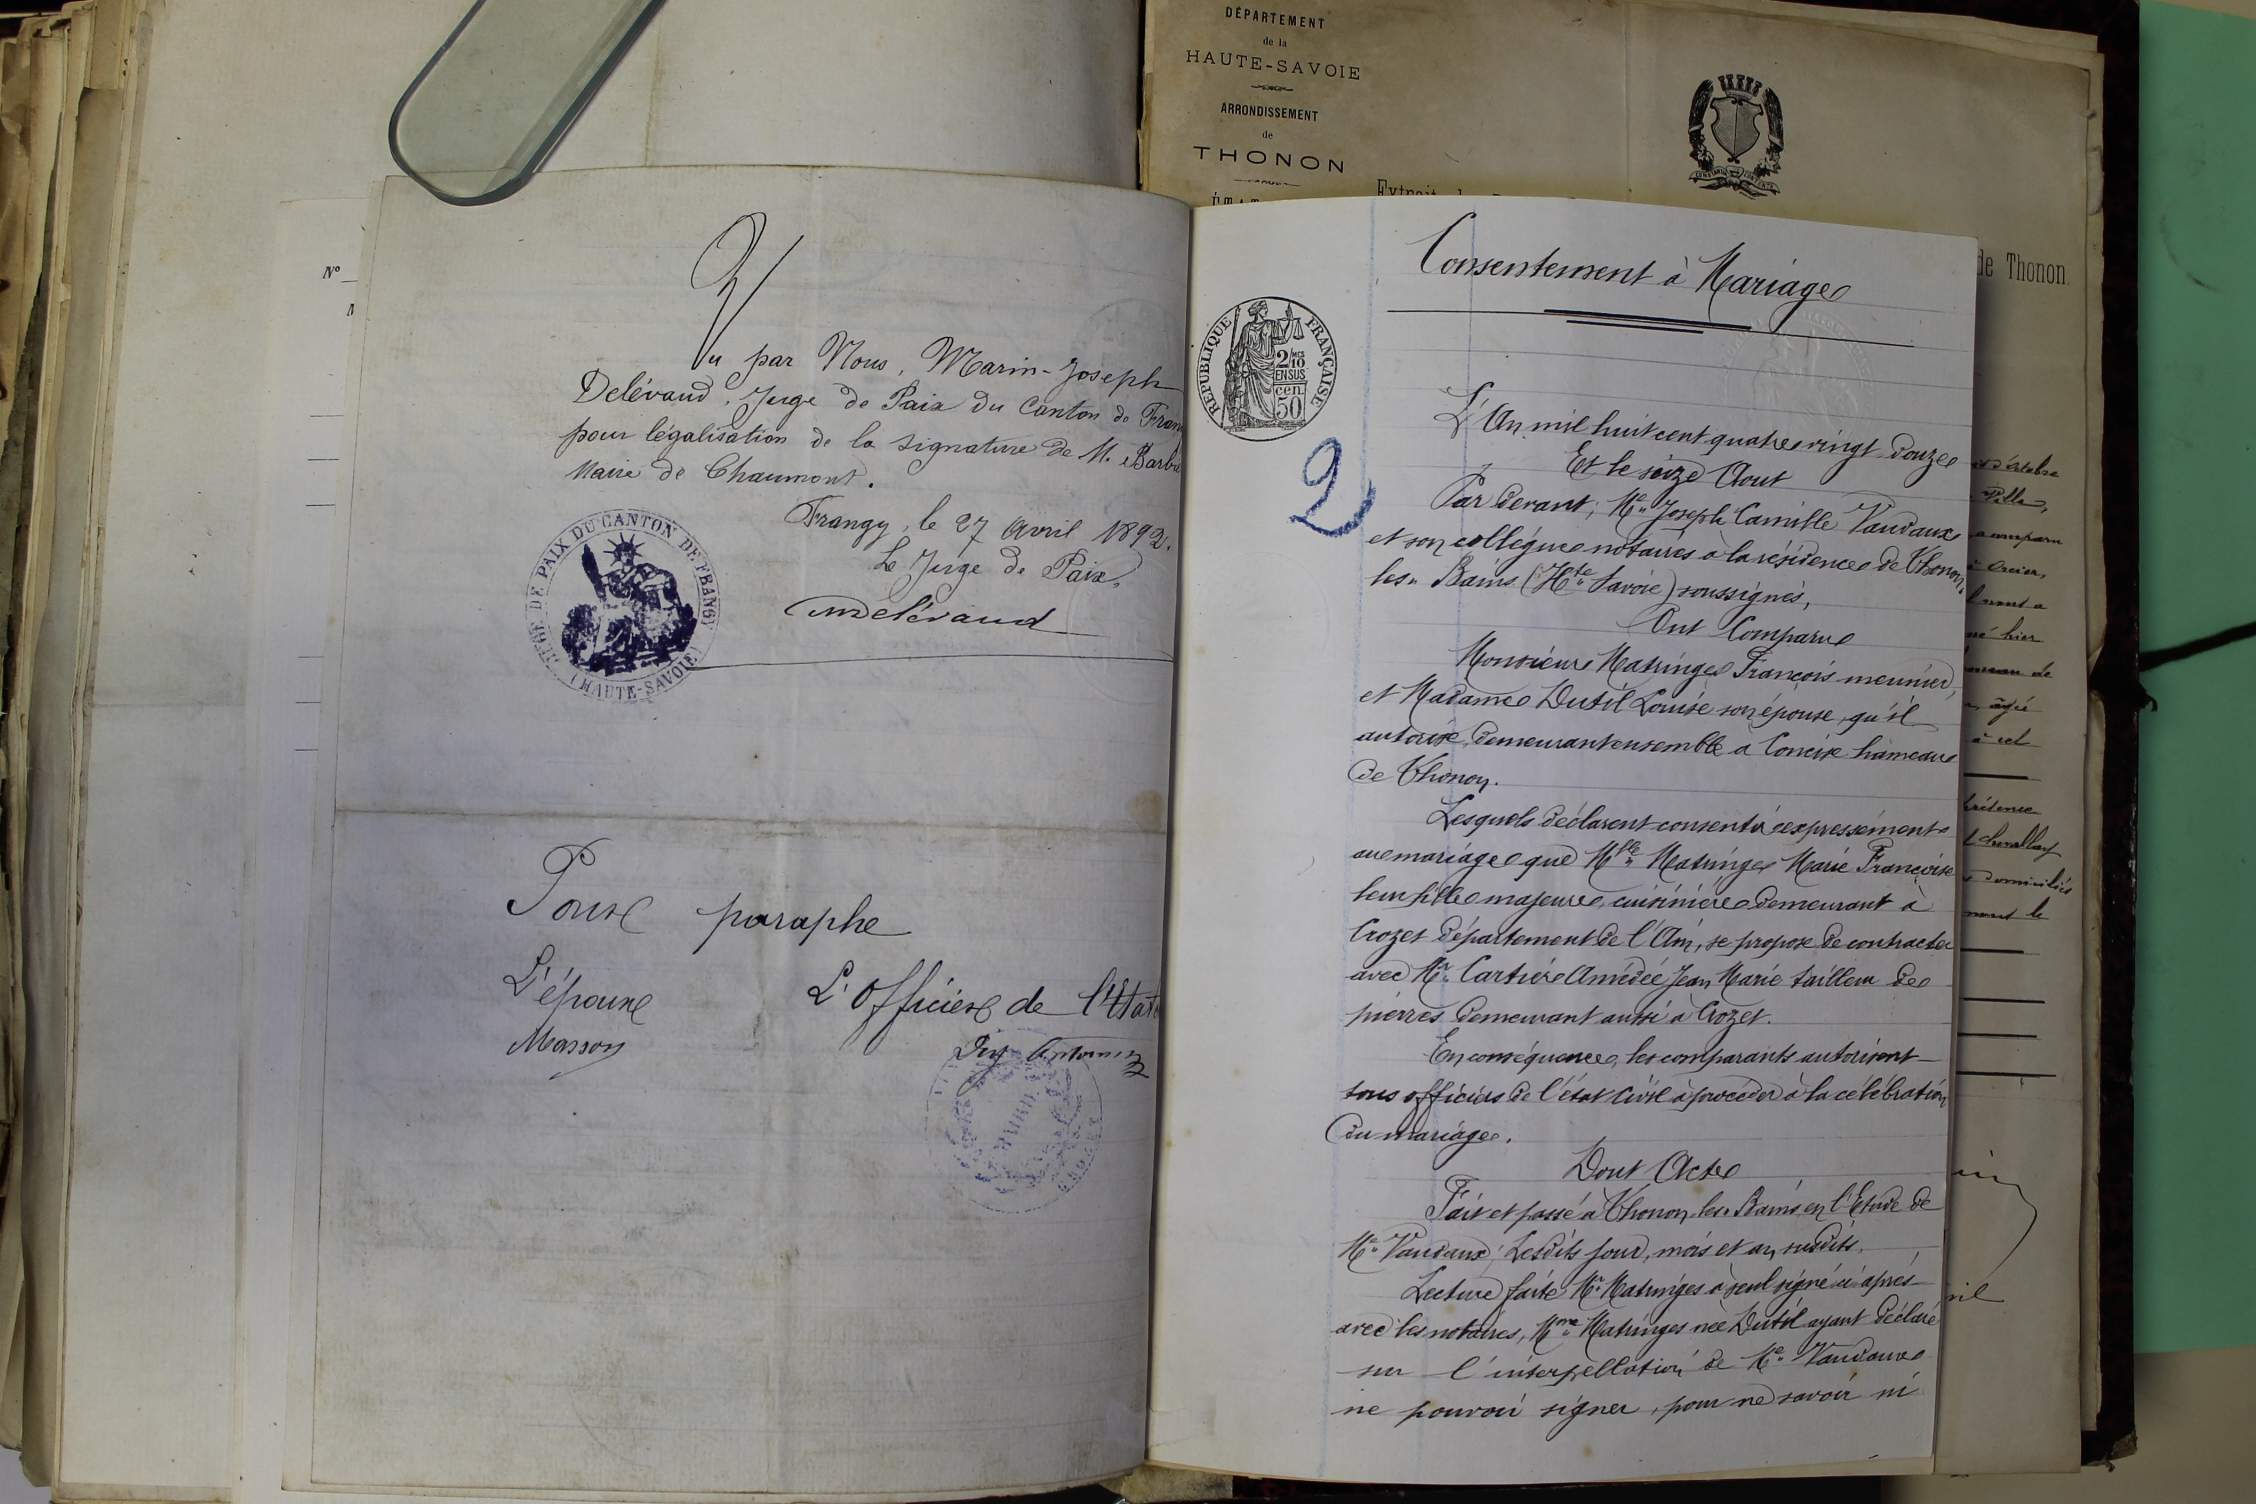 DÉPARTEMENT
de la
HAUTE-SAVOIE
ARRONDISSEMENT
de
THONON
de Thonon
Nº
Vu par Nous, Marin-Joseph
Delévaud, Juge de Paix du Canton de Fran
pour légalisation de la signature de M. Barbi
Maire de Chaumont.
Frangy, le 27 Avril 1892.
Le Juge de Paix,
Delévaud
JUGE DE PAIX DU CANTON DE FRANGY
(HAUTE-SAVOIE)
Pour paraphe
L'époux
Masson
L'Officier de l'Etat
Consentement à Mariage
RÉPUBLIQUE FRANÇAISE
2/10 EN SUS
cen.
50
2
L'An mil huit cent quatre vingt douze
Et le seize Aout
Par devant, Me Joseph Camille Vaudaux
et son collégue notaires à la résidence de Thonon
les-Bains (Hte Savoie) soussignés,
Ont Comparu
Monsieur Matringe François meunier,
et Madame Dutil Louise son épouse, qu'il
autorise, demeurant ensemble a Concise hameau
de Thonon.
Lesquels déclarent consentir expressément
au mariage que Mlle Matringe Marie Françoise
leur fille majeure, cuisinière demeurant à
Crozet département de l'Ain, se propose de contracter
avec Mr Cartier Amédée Jean Marie tailleur de
pierres demeurant aussi à Crozet.
En conséquence, les comparants autorisent
tous officiers de l'état civil à procéder à la célébration
du mariage.
Dont Acte
Fait et passé à Thonon-les-Bains en l'Etude de
Me Vaudaux, Lesdits jour, mois et an susdits.
Lecture faite Mr Matringes a seul signé ci-après
avec les notaires, Mme Matringes née Dutil ayant déclaré
sur l'interpellation de Me Vaudaux
ne pouvoir signer, pour ne savoir ni